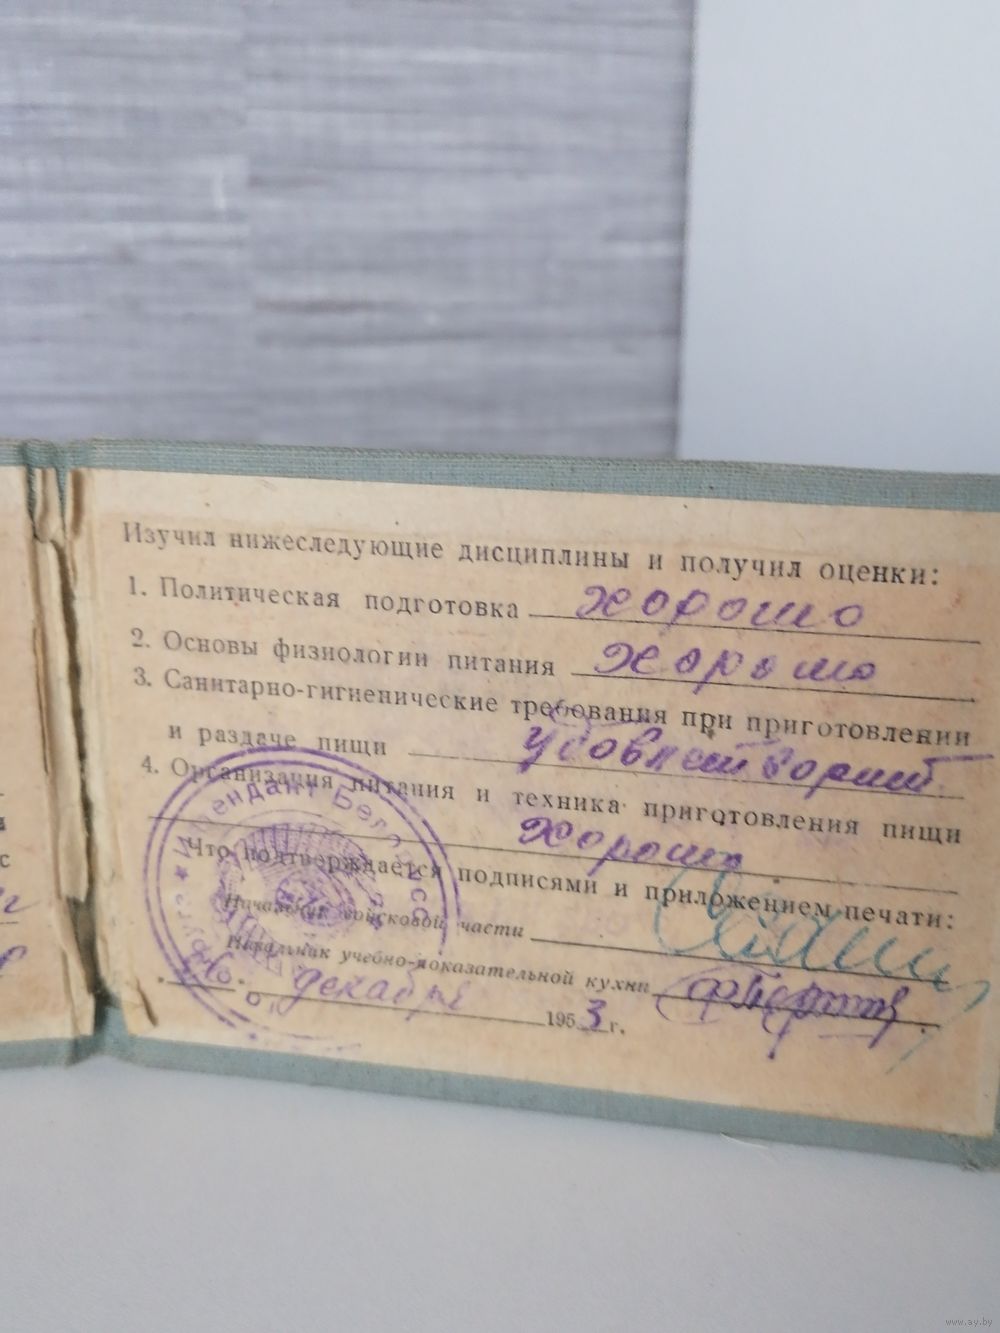 Изучил нижеследующие дисциплины и получил оценки:
1. Политическая подготовка хорошо
2. Основы физиологии питания хорошо
3. Санитарно-гигиенические требования при приготовлении
и раздаче пищи удовлетворит.
4. Организация питания и техника приготовления пищи
хорошо
Что подтверждается подписями и приложением печати:
Начальник войсковой части
Начальник учебно-показательной кухни
декабря 1953 г.
Интендант
с
www.ay.by